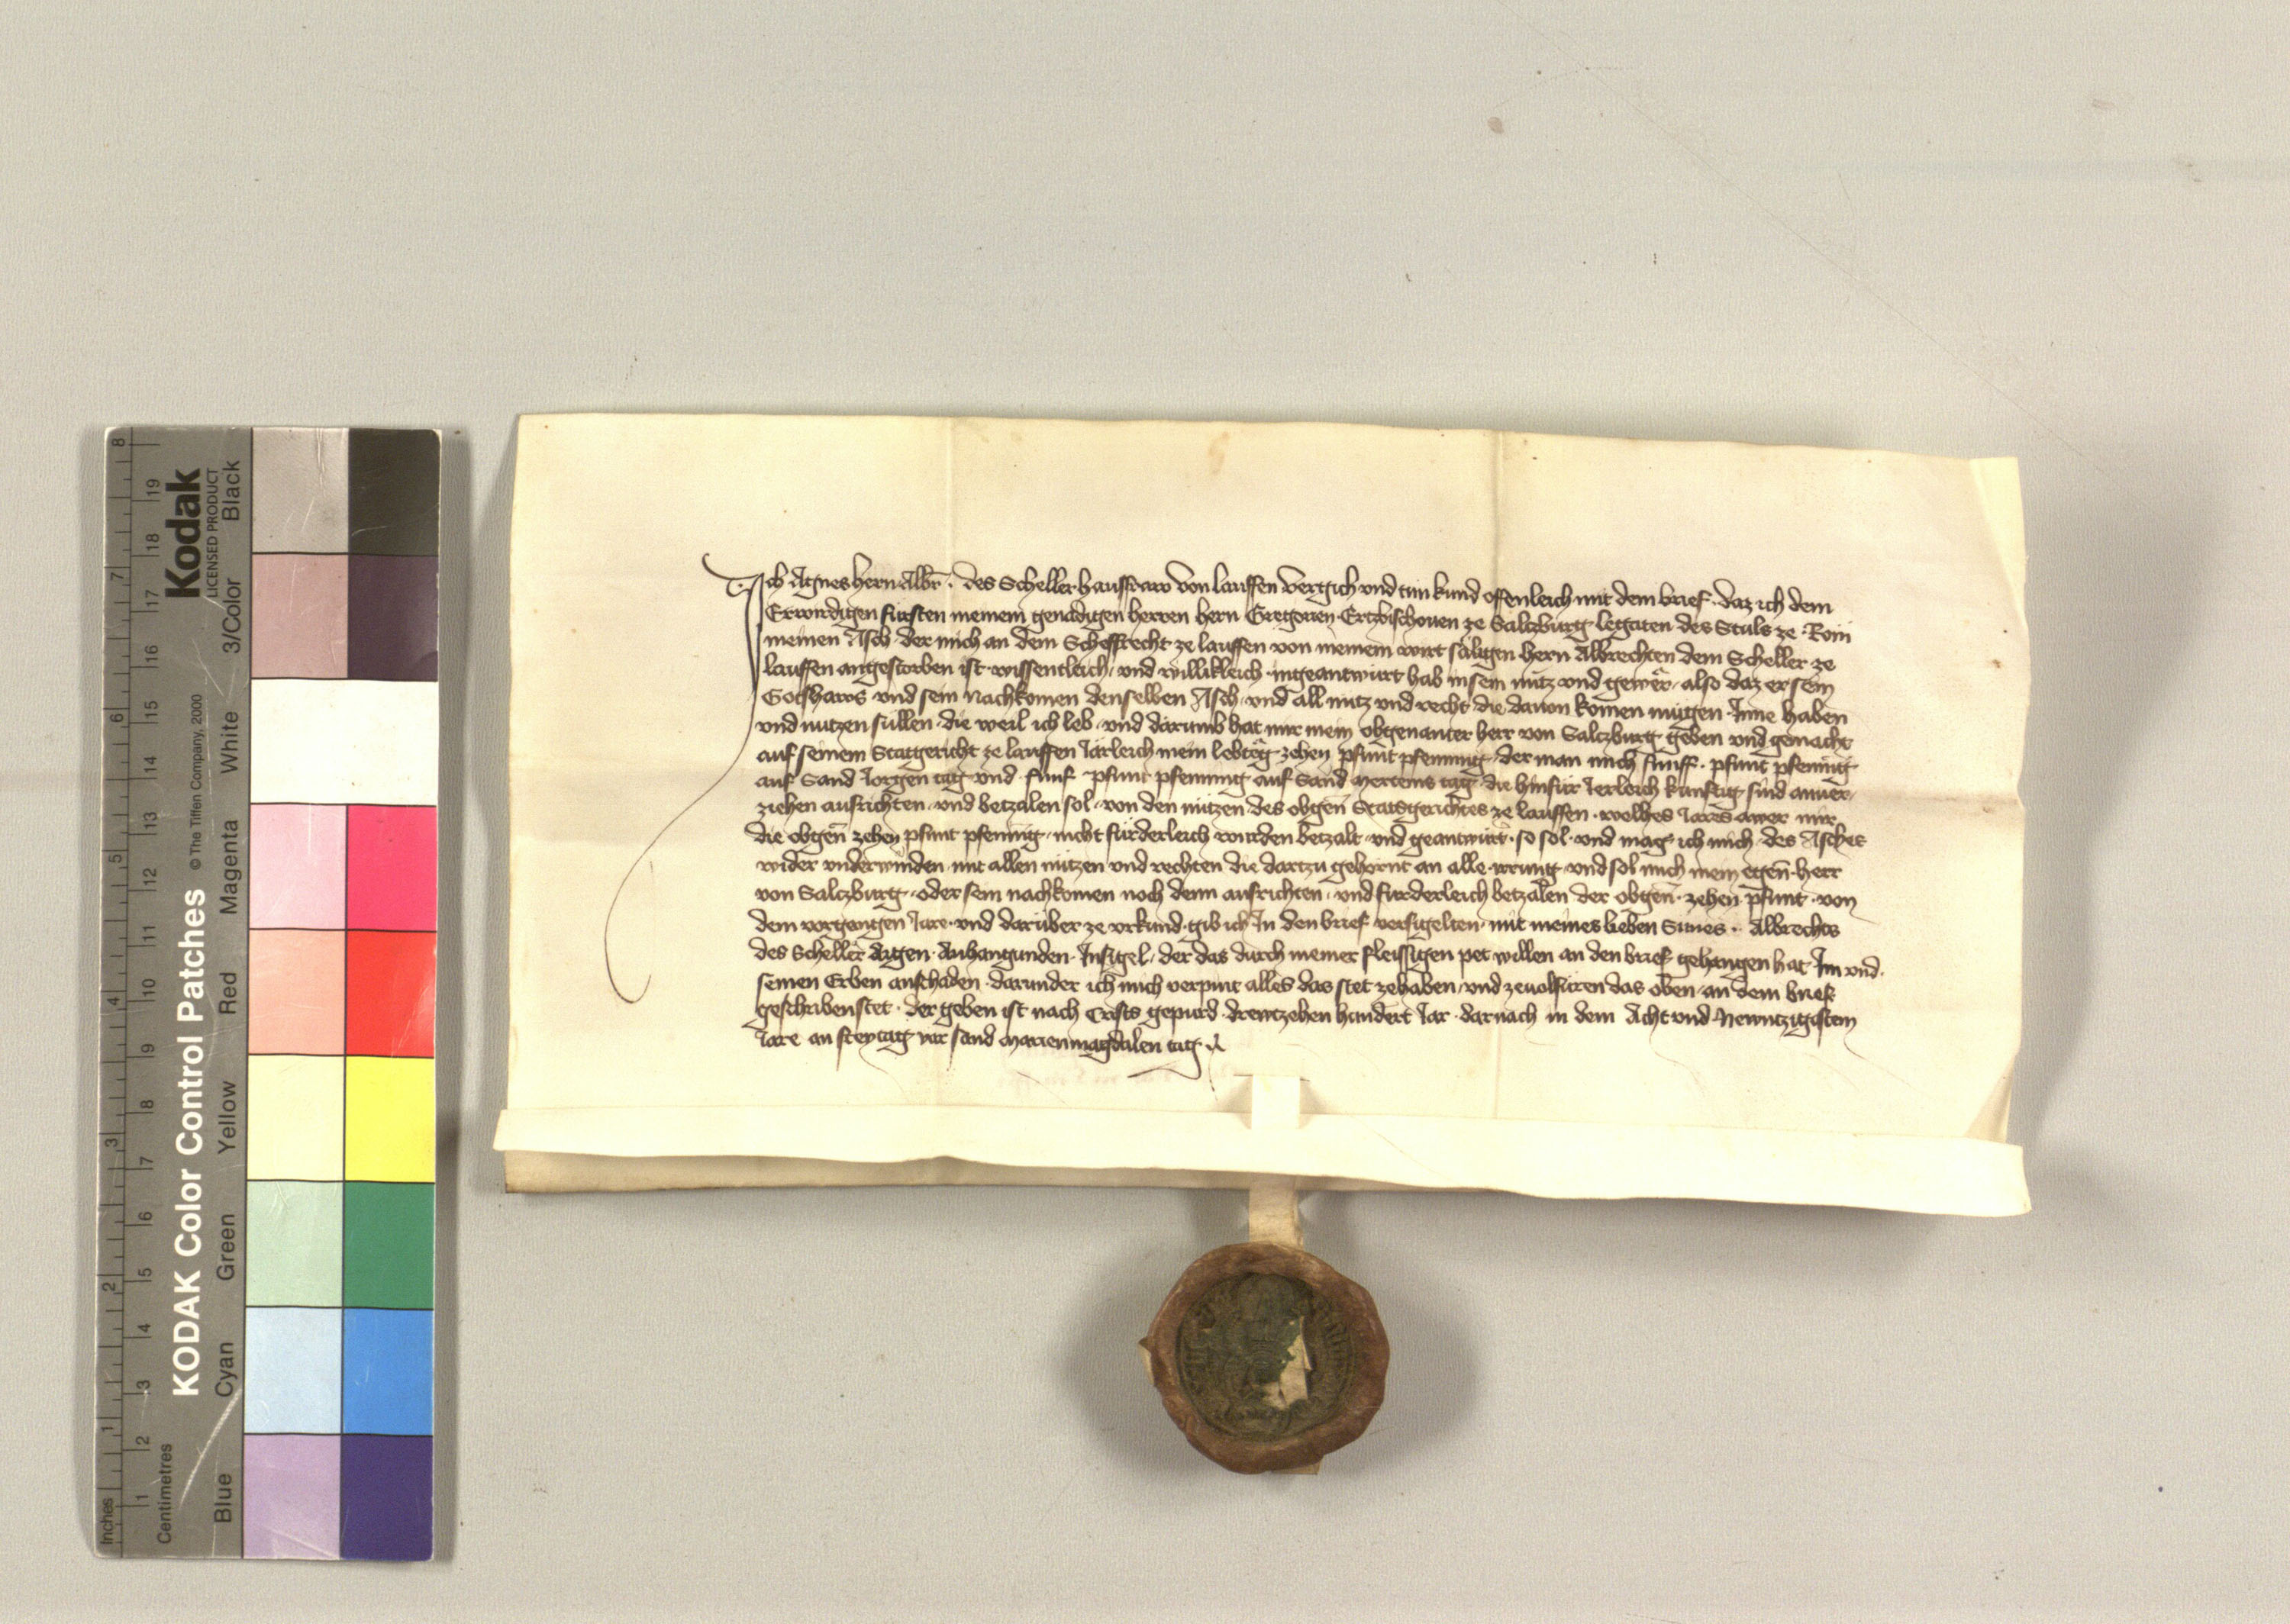 Ich Agnes hern Albr. des Scheller hausfraw von lauffen vergich und tun kund offenleich mit dem brief daz ich dem
Erwirdigen fürsten meinem genädigen herren hern Gregorien Ertzbischouen ze Salczburg legaten des Stuls ze Rom
meinen Asch der mich an dem Scheffrecht ze lauffen von meinem wirt säligen hern Albrechten dem Scheller ze
lauffen angestorben ist wissentleich und willikleich ingeantwurt hab in sein nutz und gewër also daz er sein
Gotshaws und sein nachkomen denselben Asch und all nutz und recht die dauon komen mügen Inne haben
und nutzen süllen die weil ich leb und darumb hat mir mein obgenanter herr von Salczburg geben und gemacht
auf seinem Statgericht ze lauffen Järleich mein lebtëg zehen pfunt pfenning der man mich fünff pfunt pfening
auf Sand Jorgen tag und fünf pfunt pfenning auf Sand Mertens tag die hinfür Jerleich künftig sind anuer
ziehen aufrichten und betzalen sol von den nützen des obgen Statgerichtes ze lauffen welhes Jares awer mir
die obgen zehen pfunt pfennig nicht fürderleich wurden betzalt und geantwürt so sol und mag ich mich des Asches
wider underwinden mit allen nützen und rechten die dartzu gehornt an alle irrung und sol mich mein egen herr
von Salczburg oder sein nachkomen noch denn aufrichten und fürderleich betzalen der obgen zehen pfunt von
dem vorgangen Jare und darüber ze urkund gib ich In den brief versigelten mit meines lieben Sunes Albrechts
des Scheller aigen Anhangunden Insigel der das durch meiner fleissigen pet willen an den brief gehangen hat Im und
seinen Erben anschaden darunder ich mich verpint alles das stet zehaben und zeuolfüren das oben an dem brief
geschriben stet der geben ist nach Crists gepurd drewtzehen hundert Jar darnach in dem Acht und Newntzigistem
Jare an freytag vor sand Marien magdalen tag
Kodak
LICENSED PRODUCT
KODAK Color Control Patches
© The Tiffen Company, 2000
Blue Cyan Green Yellow Red Magenta White 3/Color Black
Inches 1 2 3 4 5 6 7 8
Centimetres 1 2 3 4 5 6 7 8 9 10 11 12 13 14 15 16 17 18 19